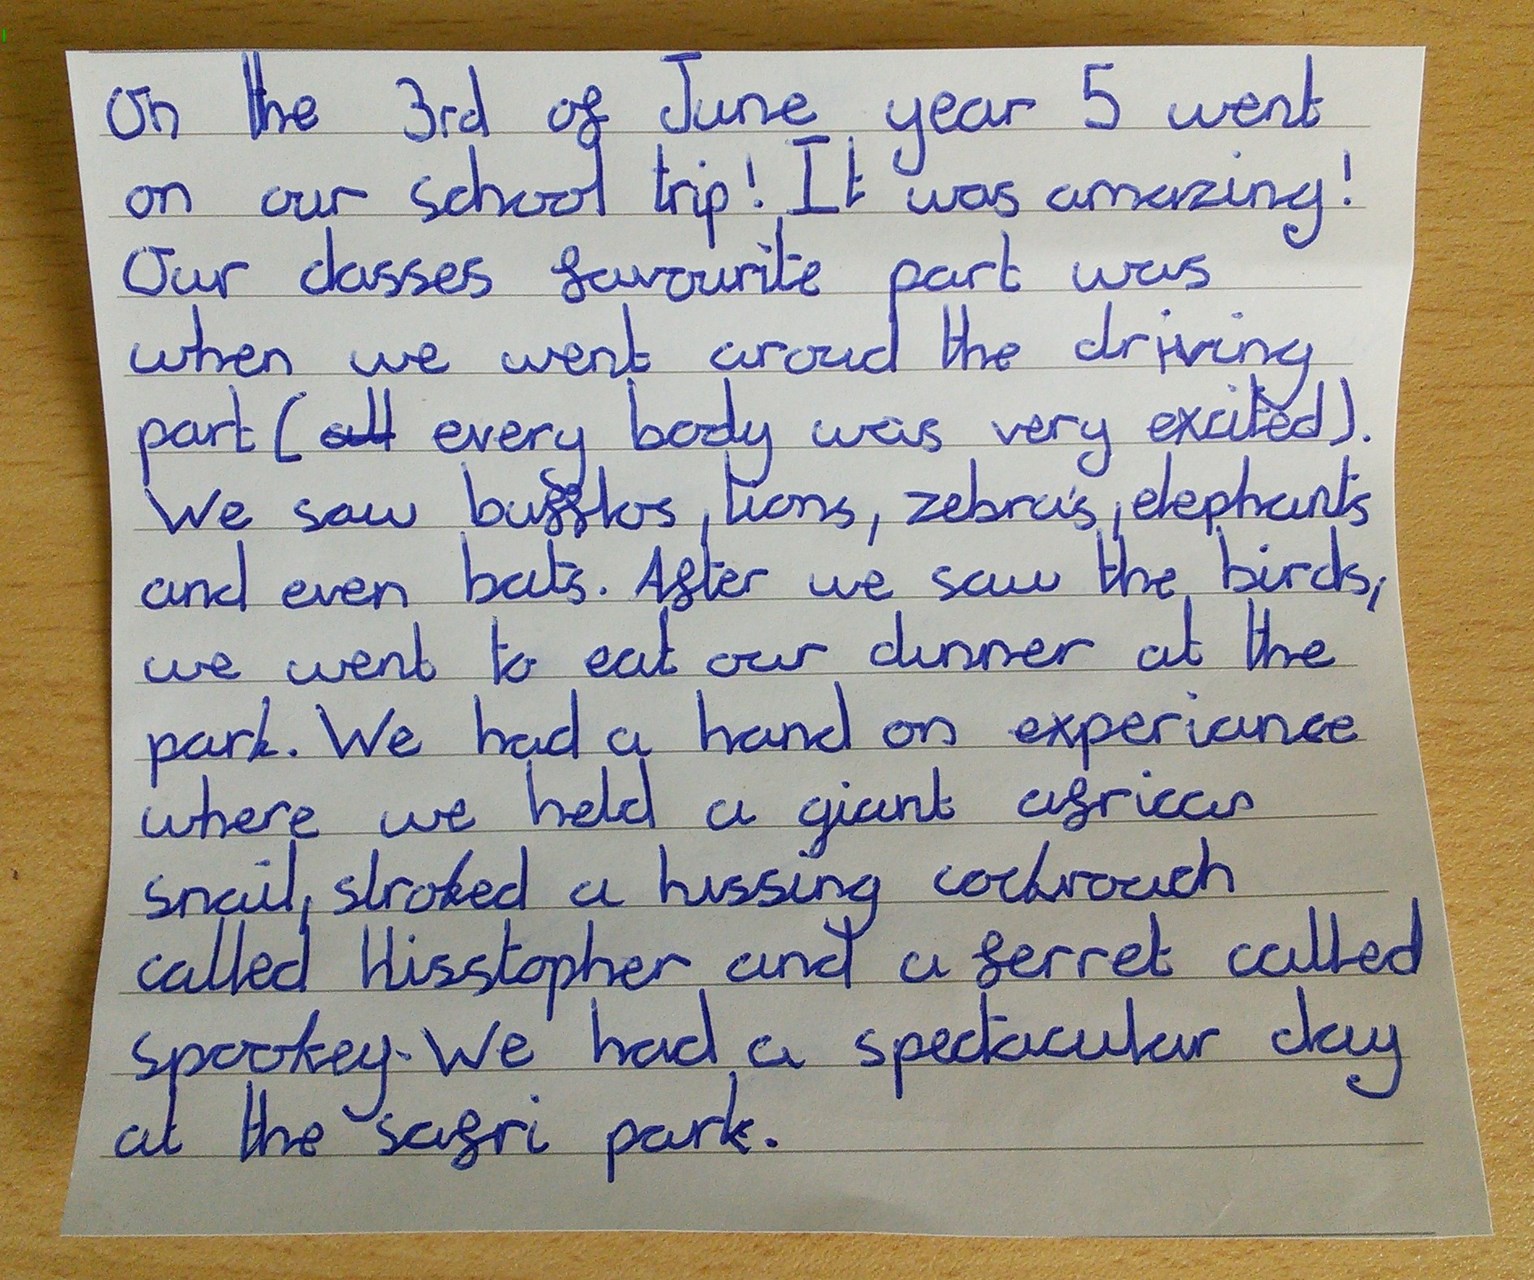 On the 3rd of June year 5 went
on our school trip! It was amazing!
Our classes favourite part was
when we went aroud the driving
part (all every body was very excited).
We saw bufflos, lions, zebra's, elephants
and even bats. After we saw the birds,
we went to eat our dinner at the
park. We had a hand on experiance
where we held a giant african
snail, stroked a hissing cockroach
called Hisstopher and a ferret called
spookey. We had a spectacular day
at the safri park.